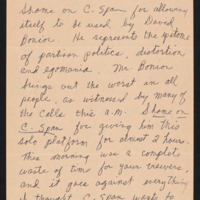 Shame on C-Span for allowing
itself to be used by David
Bonior. He represents the epitome
of partisan politics, distortion
and egomania. Mr Bonior
brings out the worst in all
people, as witnessed by many of
the calls this a.m. Shame on
C-Span for giving him this
solo platform for almost 2 hours.
This morning was a complete
waste of time for your viewers,
and it goes against everything
I thought C-Span wants to